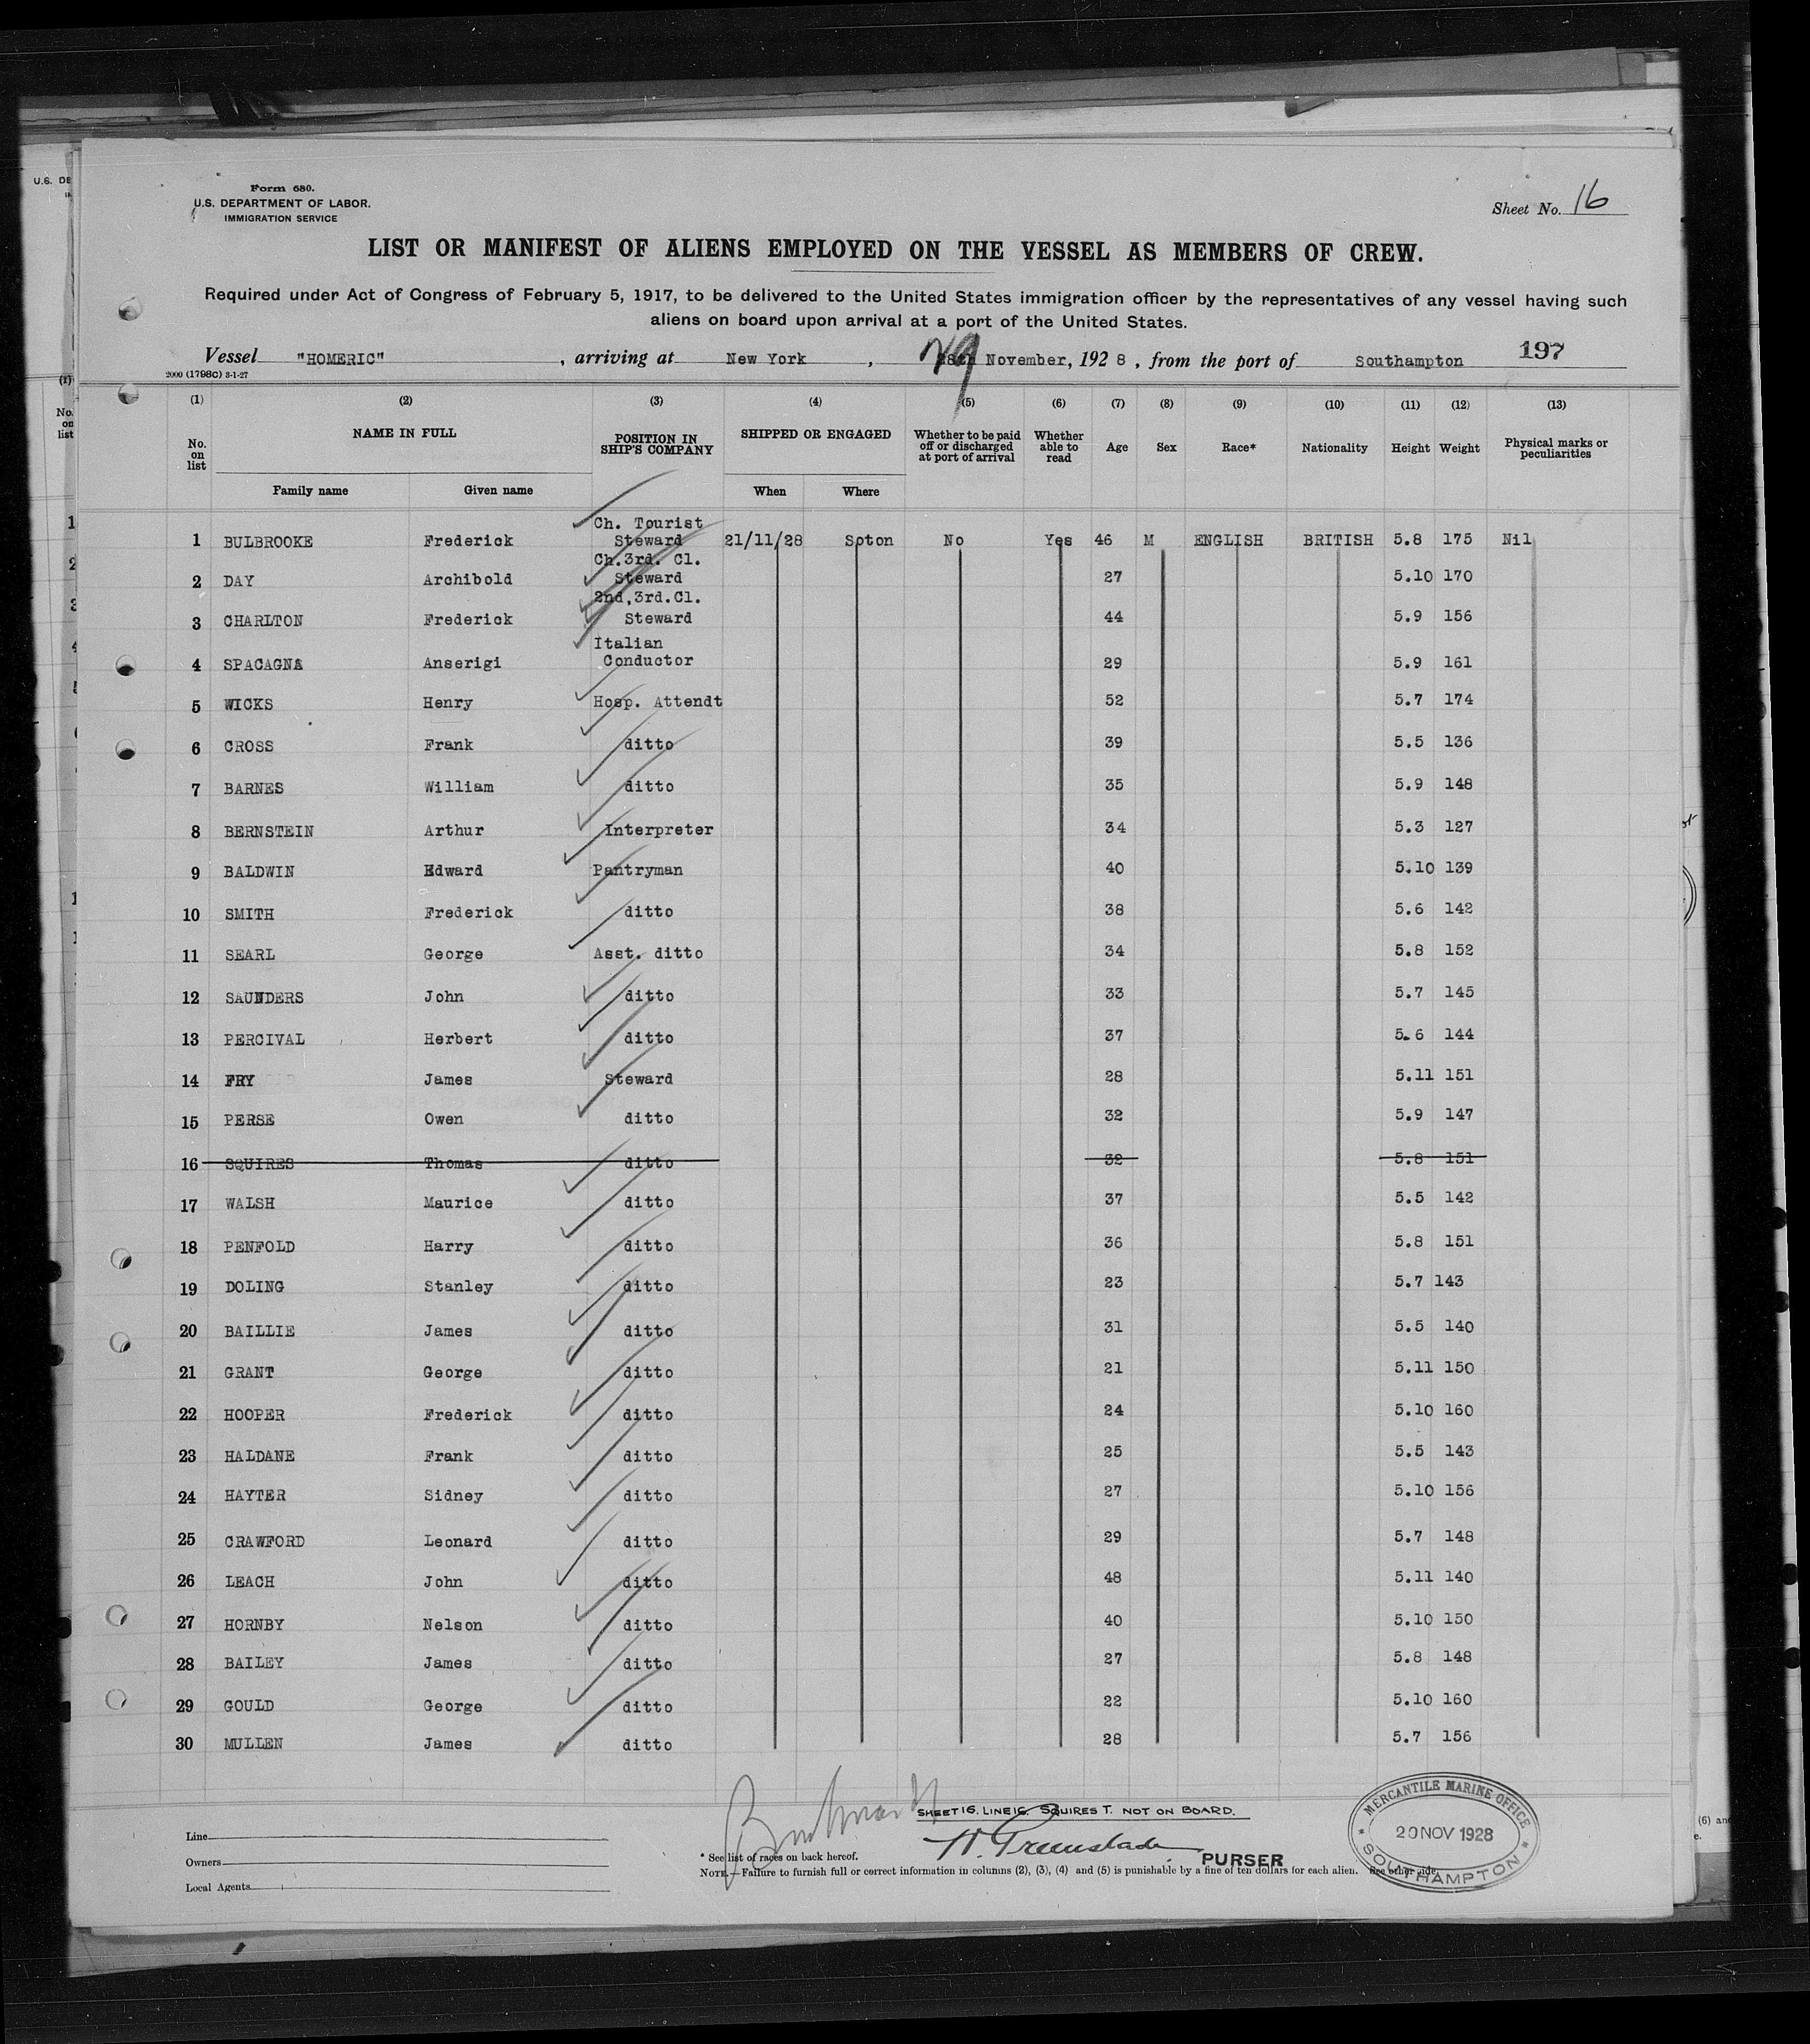 Form 680.
U.S. DEPARTMENT OF LABOR.
IMMIGRATION SERVICE
Sheet No. 16
LIST OR MANIFEST OF ALIENS EMPLOYED ON THE VESSEL AS MEMBERS OF CREW.
Required under Act of Congress of February 5, 1917, to be delivered to the United States immigration officer by the representatives of any vessel having such
aliens on board upon arrival at a port of the United States.
Vessel "HOMERIC", arriving at New York, 29 28th November, 1928, from the port of Southampton 197
2000 (1798C) 3-1-27
(1) (2) (3) (4) (5) (6) (7) (8) (9) (10) (11) (12) (13)
No. on list NAME IN FULL POSITION IN SHIP'S COMPANY SHIPPED OR ENGAGED Whether to be paid off or discharged at port of arrival Whether able to read Age Sex Race* Nationality Height Weight Physical marks or peculiarities
Family name Given name When Where
1 BULBROOKE Frederick Ch. Tourist Steward 21/11/28 Soton No Yes 46 M ENGLISH BRITISH 5.8 175 Nil
2 DAY Archibold Ch.3rd. Cl. Steward 27 5.10 170
3 CHARLTON Frederick 2nd,3rd.Cl. Steward 44 5.9 156
4 SPACAGNA Anserigi Italian Conductor 29 5.9 161
5 WICKS Henry Hosp. Attendt 52 5.7 174
6 CROSS Frank ditto 39 5.5 136
7 BARNES William ditto 35 5.9 148
8 BERNSTEIN Arthur Interpreter 34 5.3 127
9 BALDWIN Edward Pantryman 40 5.10 139
10 SMITH Frederick ditto 38 5.6 142
11 SEARL George Asst. ditto 34 5.8 152
12 SAUNDERS John ditto 33 5.7 145
13 PERCIVAL Herbert ditto 37 5.6 144
14 FRY James Steward 28 5.11 151
15 PERSE Owen ditto 32 5.9 147
16 SQUIRES Thomas ditto 32 5.8 151
17 WALSH Maurice ditto 37 5.5 142
18 PENFOLD Harry ditto 36 5.8 151
19 DOLING Stanley ditto 23 5.7 143
20 BAILLIE James ditto 31 5.5 140
21 GRANT George ditto 21 5.11 150
22 HOOPER Frederick ditto 24 5.10 160
23 HALDANE Frank ditto 25 5.5 143
24 HAYTER Sidney ditto 27 5.10 156
25 CRAWFORD Leonard ditto 29 5.7 148
26 LEACH John ditto 48 5.11 140
27 HORNBY Nelson ditto 40 5.10 150
28 BAILEY James ditto 27 5.8 148
29 GOULD George ditto 22 5.10 160
30 MULLEN James ditto 28 5.7 156
SHEET 16. LINE 16. SQUIRES T. NOT ON BOARD.
PURSER
Line
Owners
Local Agents
* See list of races on back hereof.
NOTE.—Failure to furnish full or correct information in columns (2), (3), (4) and (5) is punishable by a fine of ten dollars for each alien. See other side.
MERCANTILE MARINE OFFICE
20 NOV 1928
SOUTHAMPTON